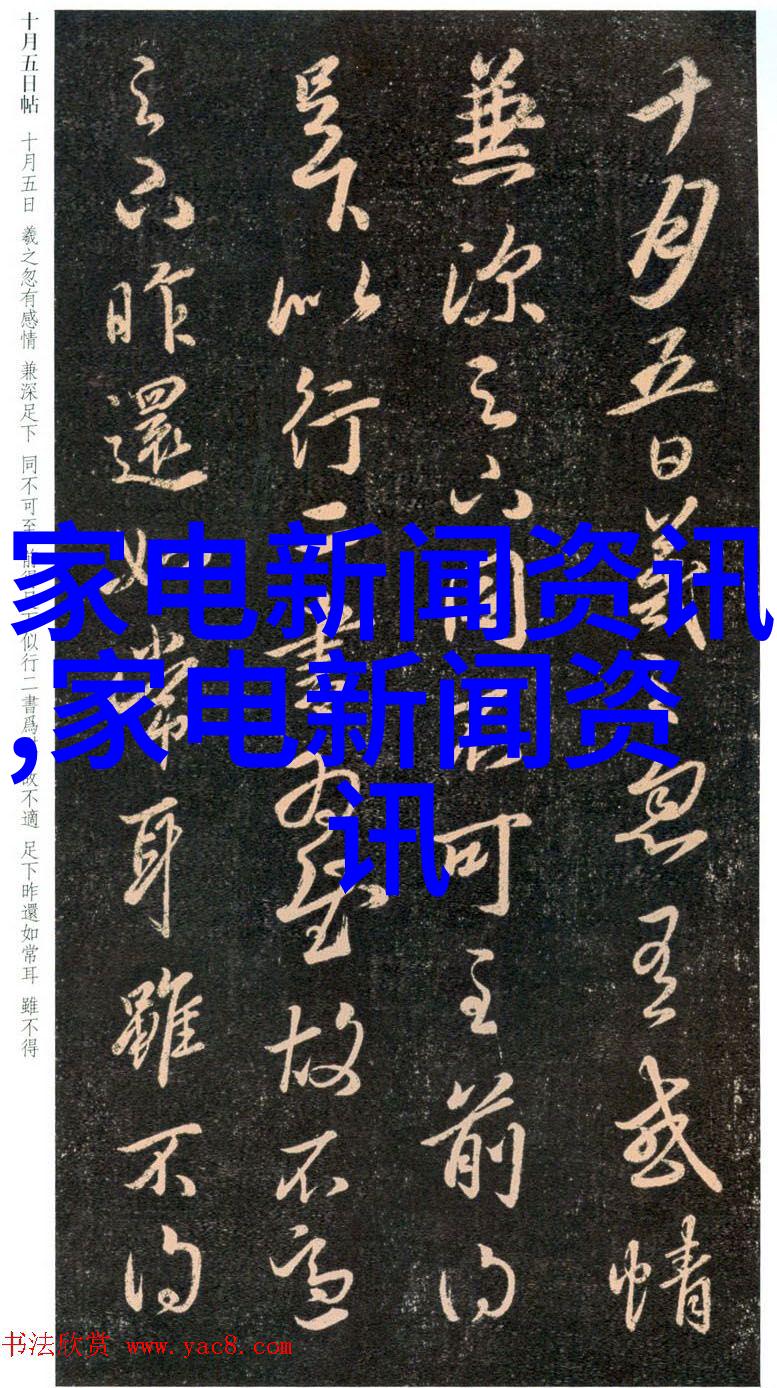 十月五日羲之忽有感情
兼深足下同不可至前得
吳下似行二書爲故不適
足下昨還如常耳雖不得
十月五日帖 十月五日 羲之忽有感情 兼深足下 同不可至 前得 似行二書爲 故不適 足下昨還如常耳 雖不得
家电新闻资讯
,家电新闻资
讯
书法欣赏 www.yac8.com